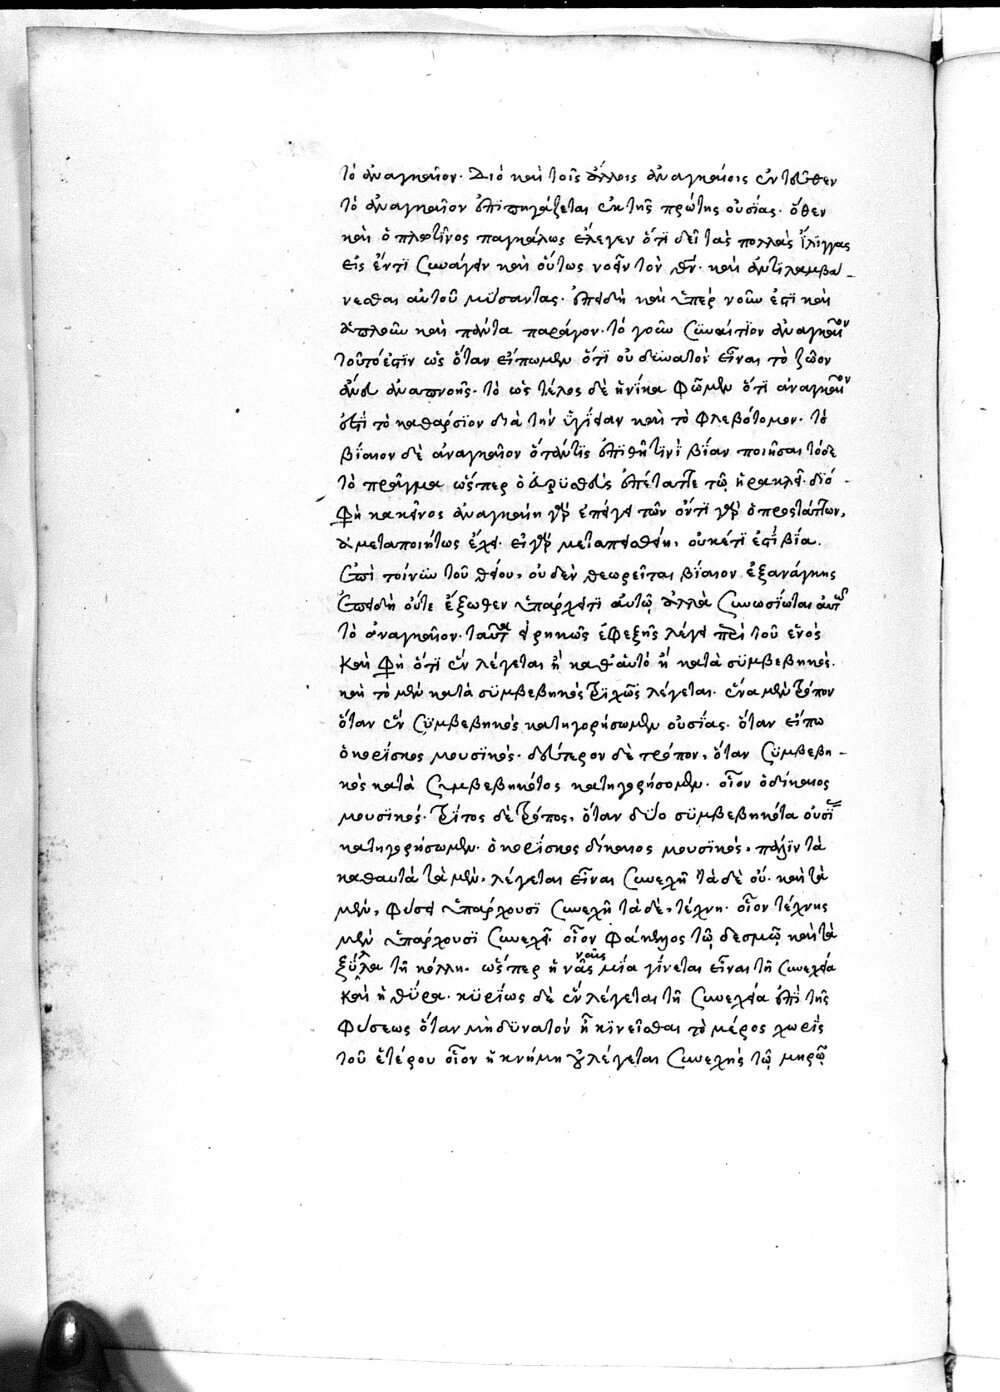 τὸ ἀναγκαῖον. Διὸ καὶ τοῖς ἄλλοις ἀναγκαίοις ἐντεῦθεν
τὸ ἀναγκαῖον ἐπϊπηγάζεται ἐκ τῆς πρώτης οὐσίας. ὅθεν
καὶ ὁ πλωτῖνος παγκάλως ἔλεγεν ὅτϊ δεῖ τὰς πολλὰς
εἰς ἕν τϊ συνάγειν καὶ οὕτως νοεῖν τὸν θν. καὶ ἀντϊλαμβά-
νεσθαι αὐτοῦ μϋσαντας. ἐπειδὴ καὶ ὑπὲρ νοῦν ἐστϊ καὶ
ἁπλοῦν καὶ πάντα παράγον. τὸ γοῦν συναίτϊον ἀναγκαῖον
τοῦτό ἐστϊν ὡς ὅταν εἴπωμεν ὅτϊ οὐ δϋνατὸν εἶναι τὸ ζῶον
ἄνευ ἀναπνοῆς. τὸ ὡς τέλος δὲ ἡνίκα φῶμεν ὅτϊ ἀναγκαῖον
ἐστϊ τὸ καθάρσϊον διὰ τὴν ὑγίειαν καὶ τὸ φλεβότομον. τὸ
βίαιον δὲ ἀναγκαῖον ὅταν τϊς ἐπϊθῆ τϊνϊ βίαν ποιῆσαι τόδε
τὸ πρᾶγμα ὥσπερ ὁ εὐρϋσθεὺς ἐπέταττε τῷ ἡρακλεῖ. διό-
φη κἀκεῖνος ἀναγκαίη γὰρ ἐπείγει τῶν ὄντϊ γὰρ ὁ προστάττων,
ἀμεταποιήτως ἔχει. εἰ γὰρ μεταπεισθείη, οὐκέτϊ ἐστϊ βία.
Ἐπὶ τοίνυν τοῦ θείου, οὐδὲν θεωρεῖται βίαιον ἐξανάγκης
Ἐπειδὴ οὔτε ἔξωθεν ὑπάρχει τϊ αὐτῷ ἀλλὰ συνωσίωται αὐτῷ
τὸ ἀναγκαῖον. ταῦτα εἰρηκὼς ἐφεξῆς λέγει περὶ τοῦ ἑνὸς
καὶ φη ὅτϊ ἓν λέγεται ἢ καθ' αὑτὸ ἢ κατὰ σϋμβεβηκός.
καὶ τὸ μὲν κατὰ σϋμβεβηκὸς τρϊχῶς λέγεται. ἕνα μὲν τρόπον
ὅταν ἓν σϋμβεβηκὸς κατηγορήσωμεν οὐσίας. ὅταν εἴπω
ὁ κορΐσκος μουσϊκός. δεύτερον δὲ τρόπον, ὅταν σϋμβεβη-
κὸς κατὰ συμβεβηκότος κατηγορήσομεν. οἷον ὁ δίκαιος
μουσϊκός. τρίτος δὲ τρόπος, ὅταν δϋο σϋμβεβηκότα οὐσΐας
κατηγορήσωμεν. ὁ κορΐσκος δίκαιος μουσϊκός. πάλϊν τὰ
καθαυτὰ τὰ μὲν, λέγεται εἶναι συνεχῆ τὰ δὲ οὔ. καὶ τὰ
μὲν, φύσει ὑπάρχουσϊ συνεχῆ τὰ δὲ, τέχνη. οἷον τέχνης
μὲν ὑπάρχουσϊ συνεχεῖ. οἷον φάκελος τῷ δεσμῷ καὶ τὰ
ξΰλα τῆ κόλλη. ὥσπερ ἡ νᾶυς μία γίνεται εἶναι τῆ συνεχεία
καὶ ἡ θΰρα. κϋρίως δὲ ἓν λέγεται τῆ συνεχεία ἐπϊ τῆς
φύσεως ὅταν μὴ δϋνατὸν ἦ κϊνεῖσθαι τὸ μέρος χωρὶς
τοῦ ἑτέρου οἷον ἡ κνήμη λέγεται συνεχὴς τῷ μηρῷ